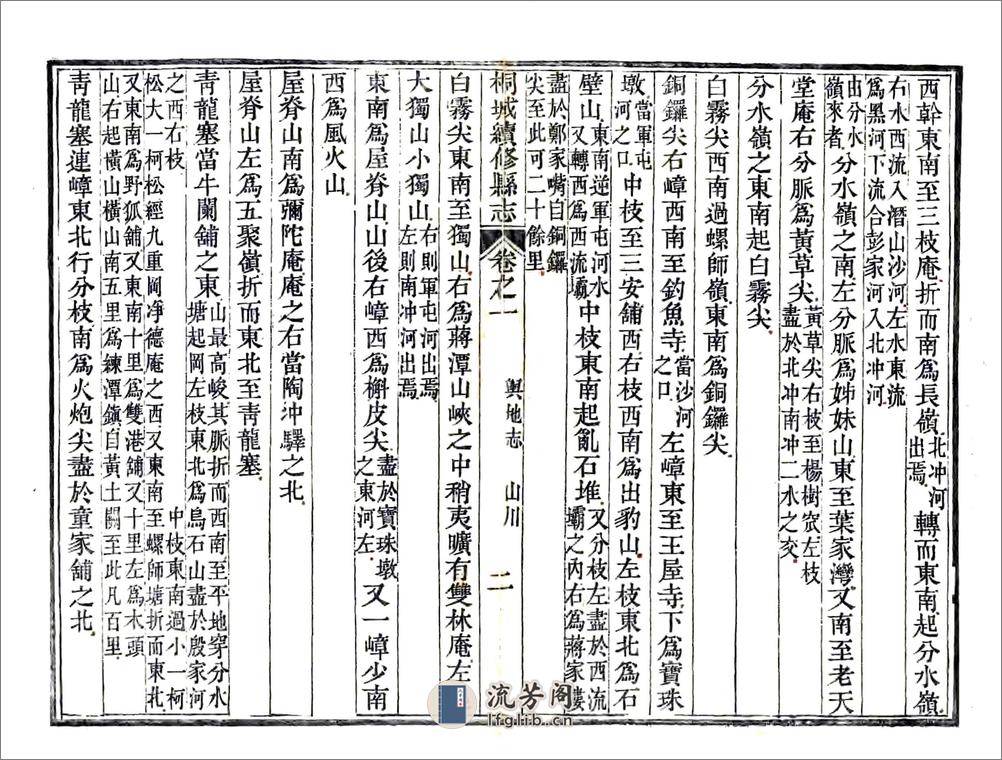 西幹東南至三枝庵折而南爲長嶺北冲河出焉轉而東南起分水嶺
右水西流入潛山沙河左水東流爲黑河下流合彭家河入北冲河
出分水嶺來者分水嶺之南左分脈爲姊妹山東至葉家灣又南至老天
堂庵右分脈爲黃草尖黃草尖右枝至楊樹窊左枝盡於北冲南冲二水之交
分水嶺之東南起白霧尖
白霧尖西南過螺師嶺東南爲銅鑼尖
銅鑼尖右嶂西南至釣魚寺當沙河之口左嶂東至王屋寺下爲寶珠
墩當軍屯河之口中枝至三安舖西右枝西南爲出豹山左枝東北爲石
壁山東南逆軍屯河水又轉西爲西流壩中枝東南起亂石堆又分枝左盡於西流壩之內右爲蔣家樓
盡於鄭家嘴自銅鑼尖至此可二十餘里
桐城續修縣志 卷之一 輿地志 山川 二
白霧尖東南至獨山右爲蔣潭山峽之中稍夷曠有雙林庵左
大獨山小獨山右則軍屯河出焉左則南冲河出焉
東南爲屋脊山山後右嶂西爲槲皮尖盡於寶珠墩之東河左又一嶂少南
西爲風火山
屋脊山南爲彌陀庵庵之右當陶冲驛之北
屋脊山左爲五聚嶺折而東北至靑龍塞
靑龍塞當牛闌舖之東山最高峻其脈折而西南至平地穿分水塘起岡左枝東北爲烏石山盡於殷家河
之西右枝中枝東南過小一柯
松大一柯松經九重岡淨德庵之西又東南至螺師塘折而東北
又東南爲野狐舖又東南十里爲雙港舖又十里左爲木頭
山右起橫山橫山南五里爲練潭鎭自黃土關至此凡百里
靑龍塞連嶂東北行分枝南爲火炮尖盡於童家舖之北
流芳阁
lfglib.cn